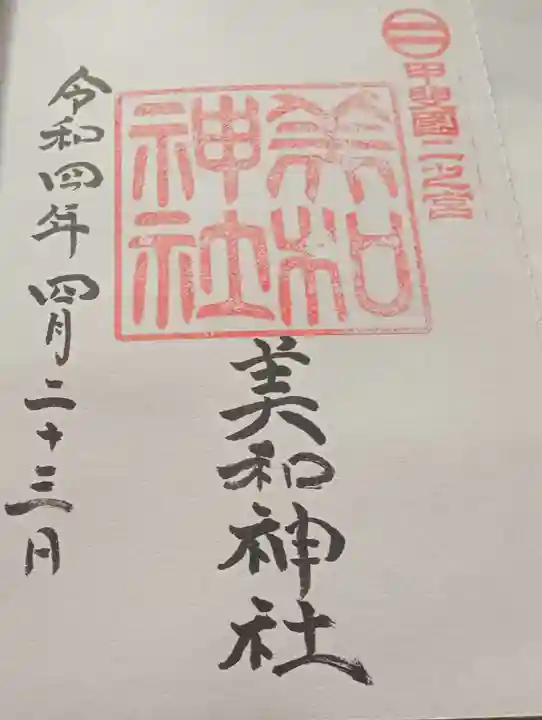 ㊁甲斐國二之宮
美和
神社
美和神社
令和四年四月二十三日